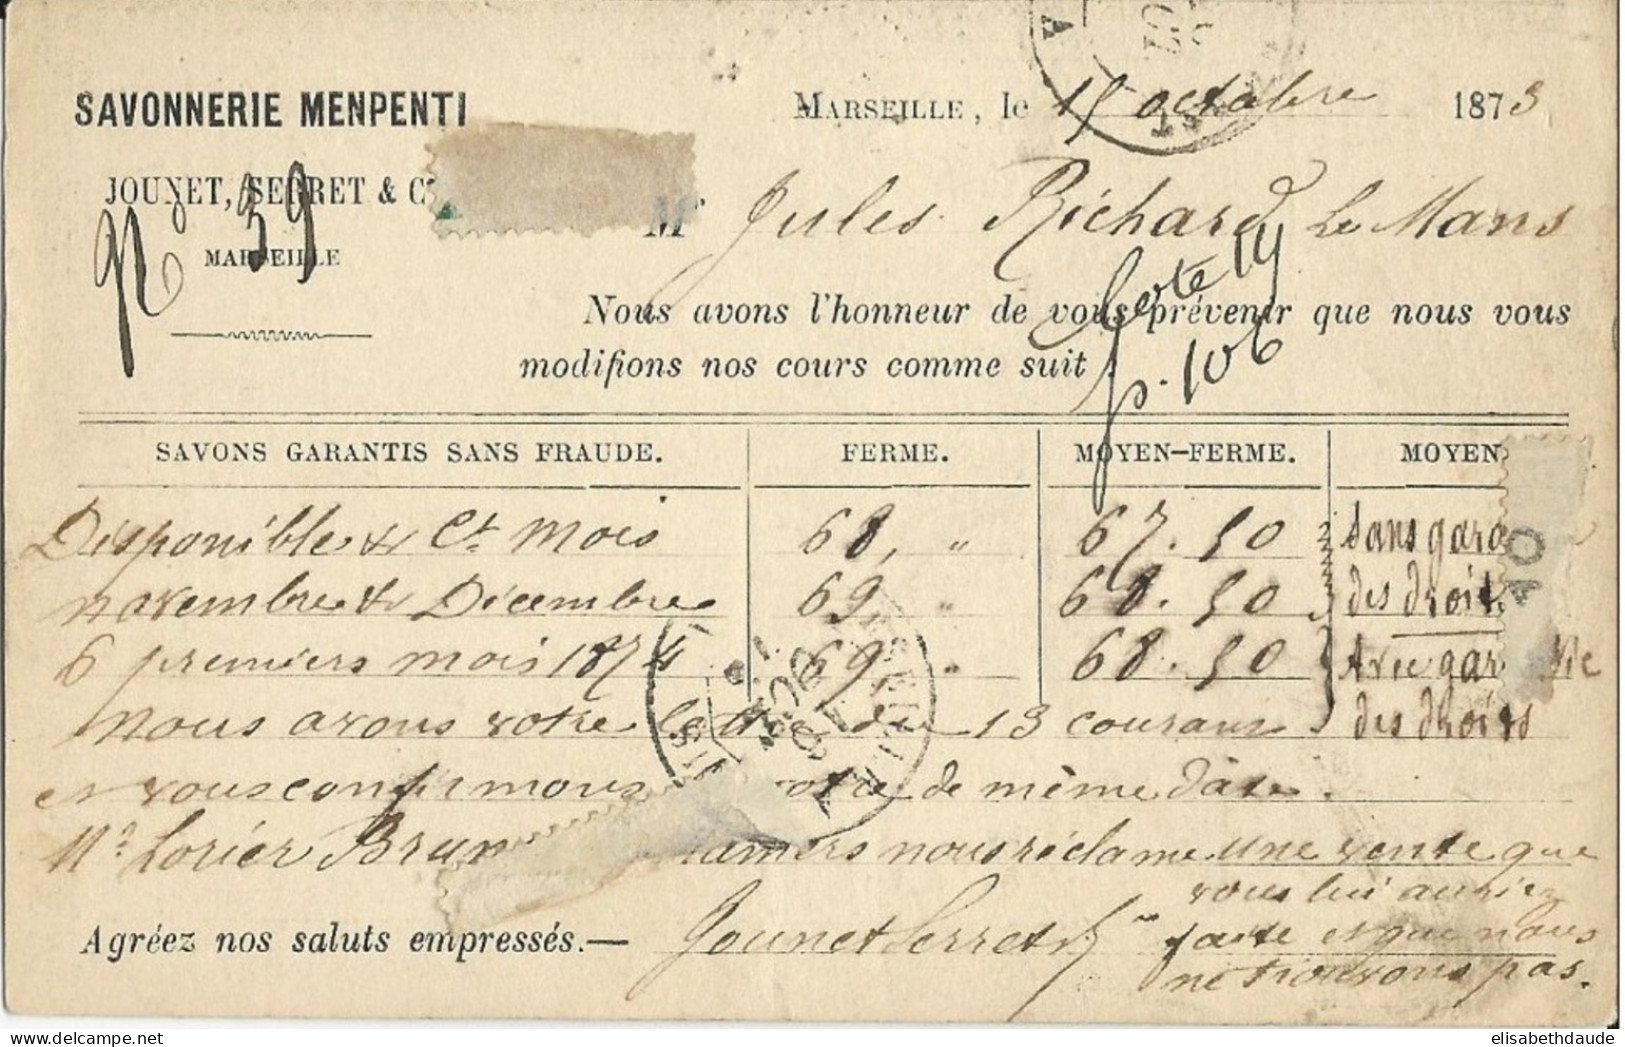 SAVONNERIE MENPENTI
JOUNET, SERRET & C
MARSEILLE
N° 39
MARSEILLE, le 17 octobre 1873
M. Jules Richard Le Mans
Carte 14
p. 106
Nous avons l'honneur de vous prévenir que nous vous
modifions nos cours comme suit :
SAVONS GARANTIS SANS FRAUDE. FERME. MOYEN-FERME. MOYEN
Disponible & Ct mois 68, " 67.50 sans gara
novembre & Décembre 69, " 68.50 des droits
6 premiers mois 1874 69, " 68.50 Avec gar tie
nous avons votre lettre du 13 courant des droits
et vous confirmons notre de même date.
Mr Lorier Brun nous réclame une vente que
vous lui auriez
faite et que nous
ne trouvons pas.
Agréez nos saluts empressés.—
Jounet Serret
40
elisabethdaude